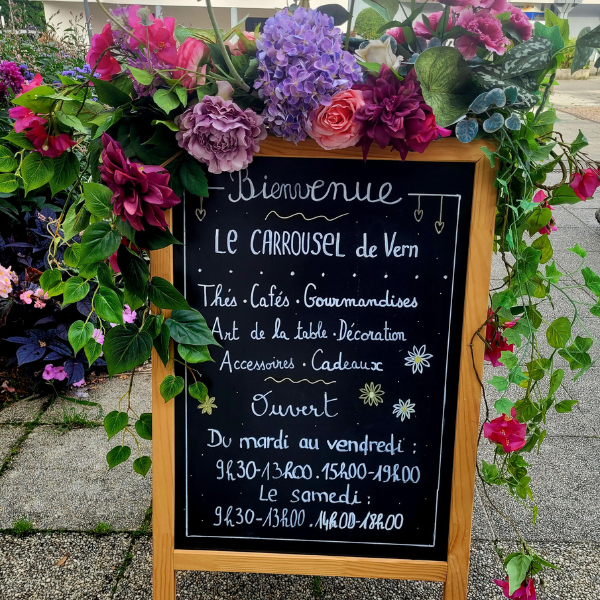 Bienvenue
LE CARROUSEL de Vern
Thés • Cafés • Gourmandises
Art de la table • Décoration
Accessoires • Cadeaux
Ouvert
Du mardi au vendredi :
9h30-13h00 . 15h00-19h00
Le samedi :
9h30-13h00 . 14h00-18h00